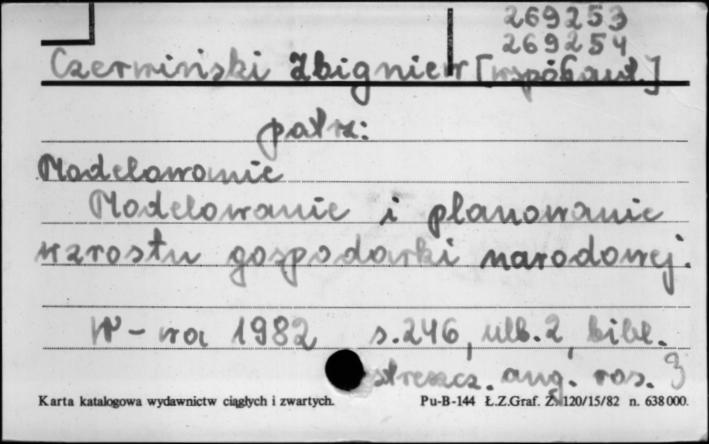 269253
269254
Czerwiński Zbigniew [współaut.]
patrz:
Modelowanie
Modelowanie i planowanie
wzrostu gospodarki narodowej.
W-wa 1982 s. 246, ulb. 2, bibl.
streszcz. ang. ros. 3
Karta katalogowa wydawnictw ciągłych i zwartych. Pu-B-144 Ł.Z.Graf. Z. 120/15/82 n. 638000.